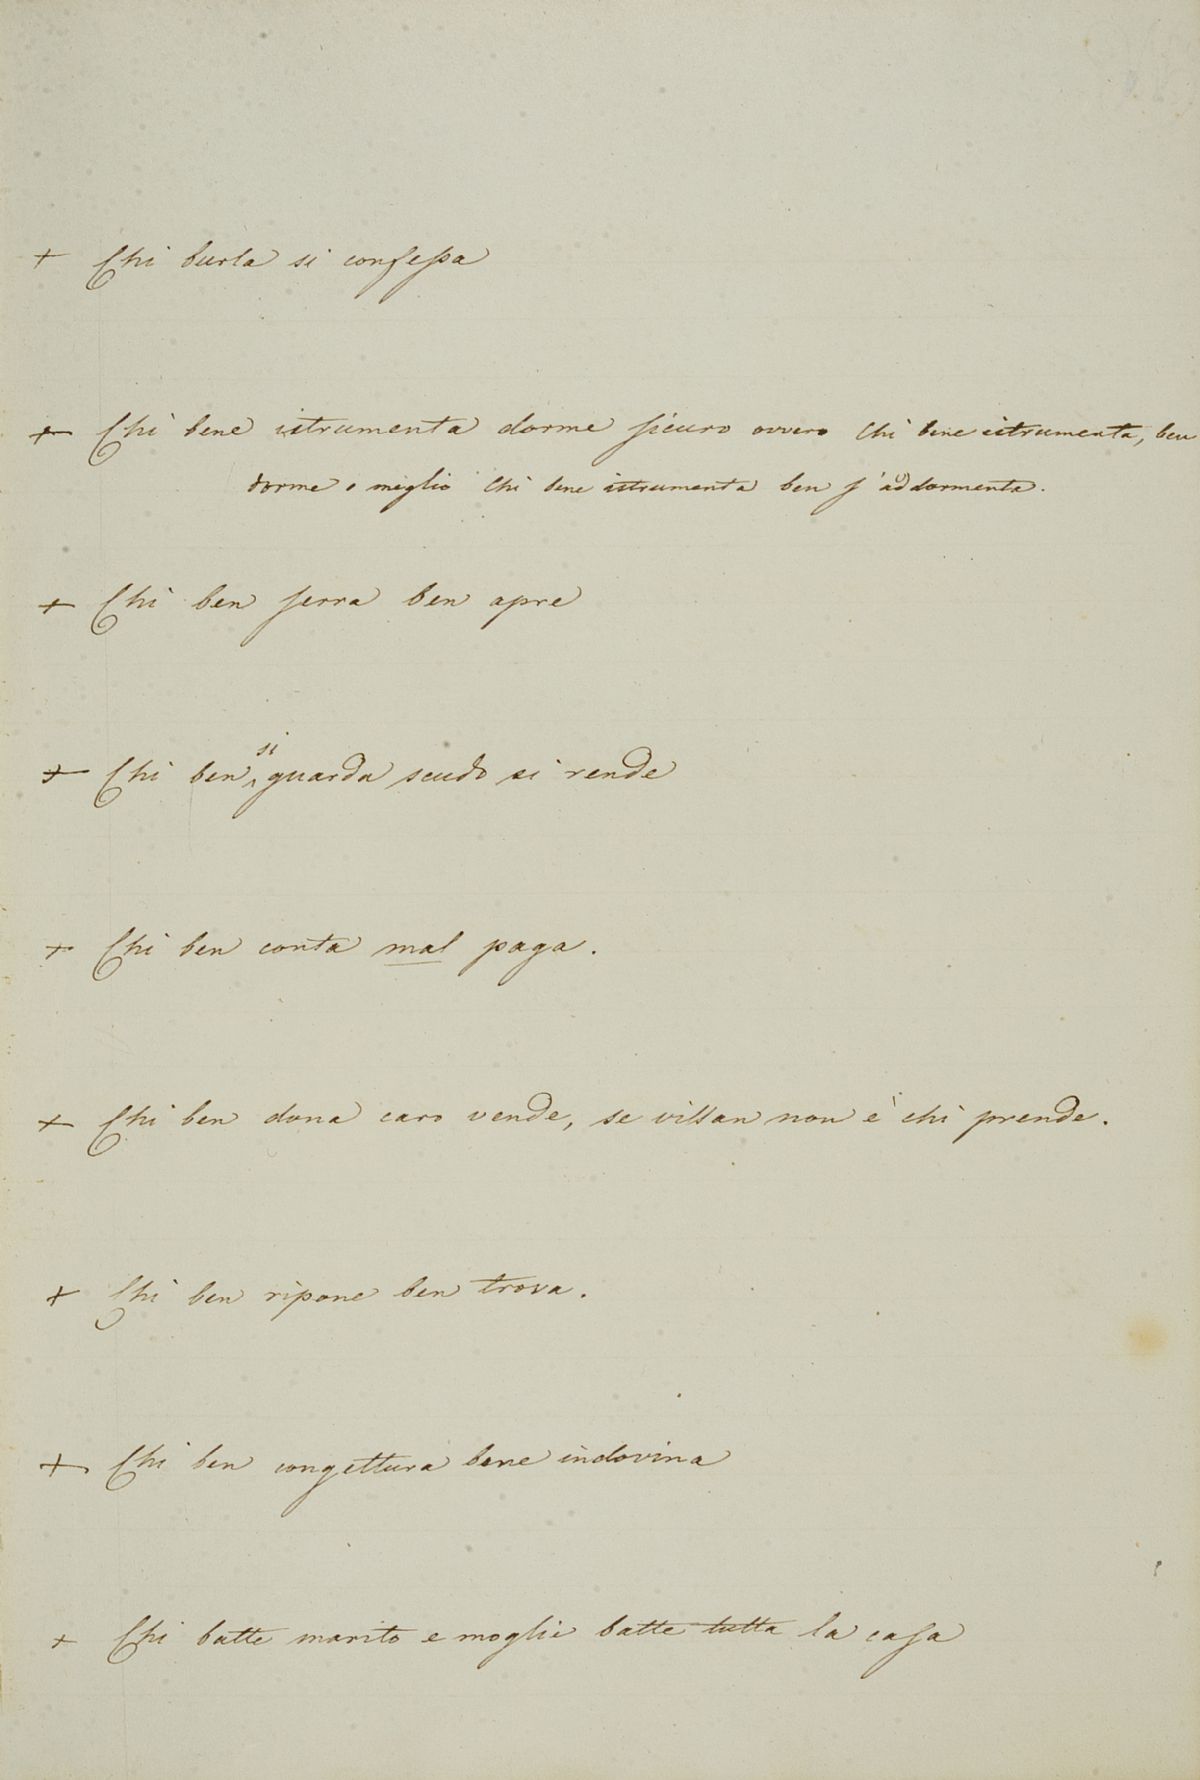 + Chi burla si confessa
+ Chi bene istrumenta dorme sicuro ovvero Chi bene istrumenta, ben
dorme o meglio Chi bene istrumenta ben s'addormenta.
+ Chi ben serra ben apre
+ Chi ben si guarda scudo si rende
+ Chi ben conta mal paga.
+ Chi ben dona caro vende, se villan non è chi prende.
+ Chi ben ripone ben trova.
+ Chi ben congettura bene indovina
+ Chi batte marito e moglie batte tutta la casa